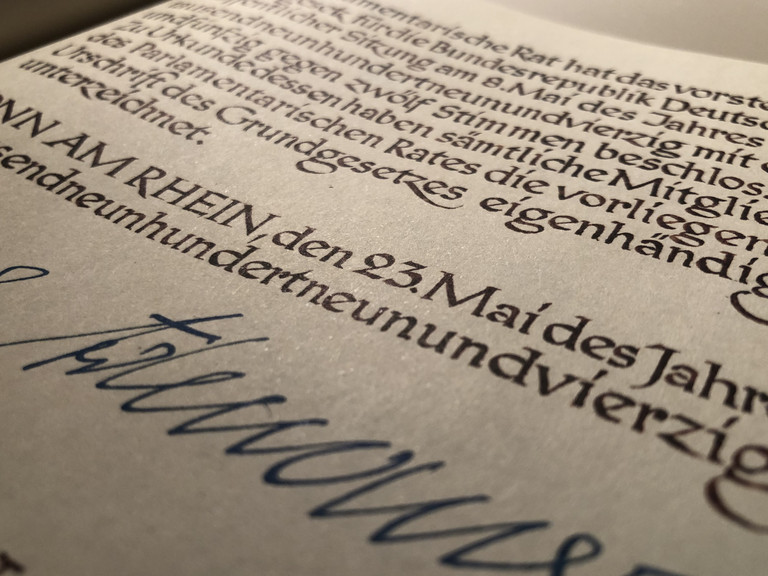 mentarische Rat hat das vorste
für die Bundesrepublik Deutsc
licher Sitzung am 8. Mai des Jahres
sendneunhundertneunundvierzig mit
undfünfzig gegen zwölf Stimmen beschlos
Zu Urkunde dessen haben sämtliche Mitglie
des Parlamentarischen Rates die vorliegen
Urschrift des Grundgesetzes eigenhändig
unterzeichnet.
ONN AM RHEIN, den 23. Mai des Jahre
sendneunhundertneunundvierzig